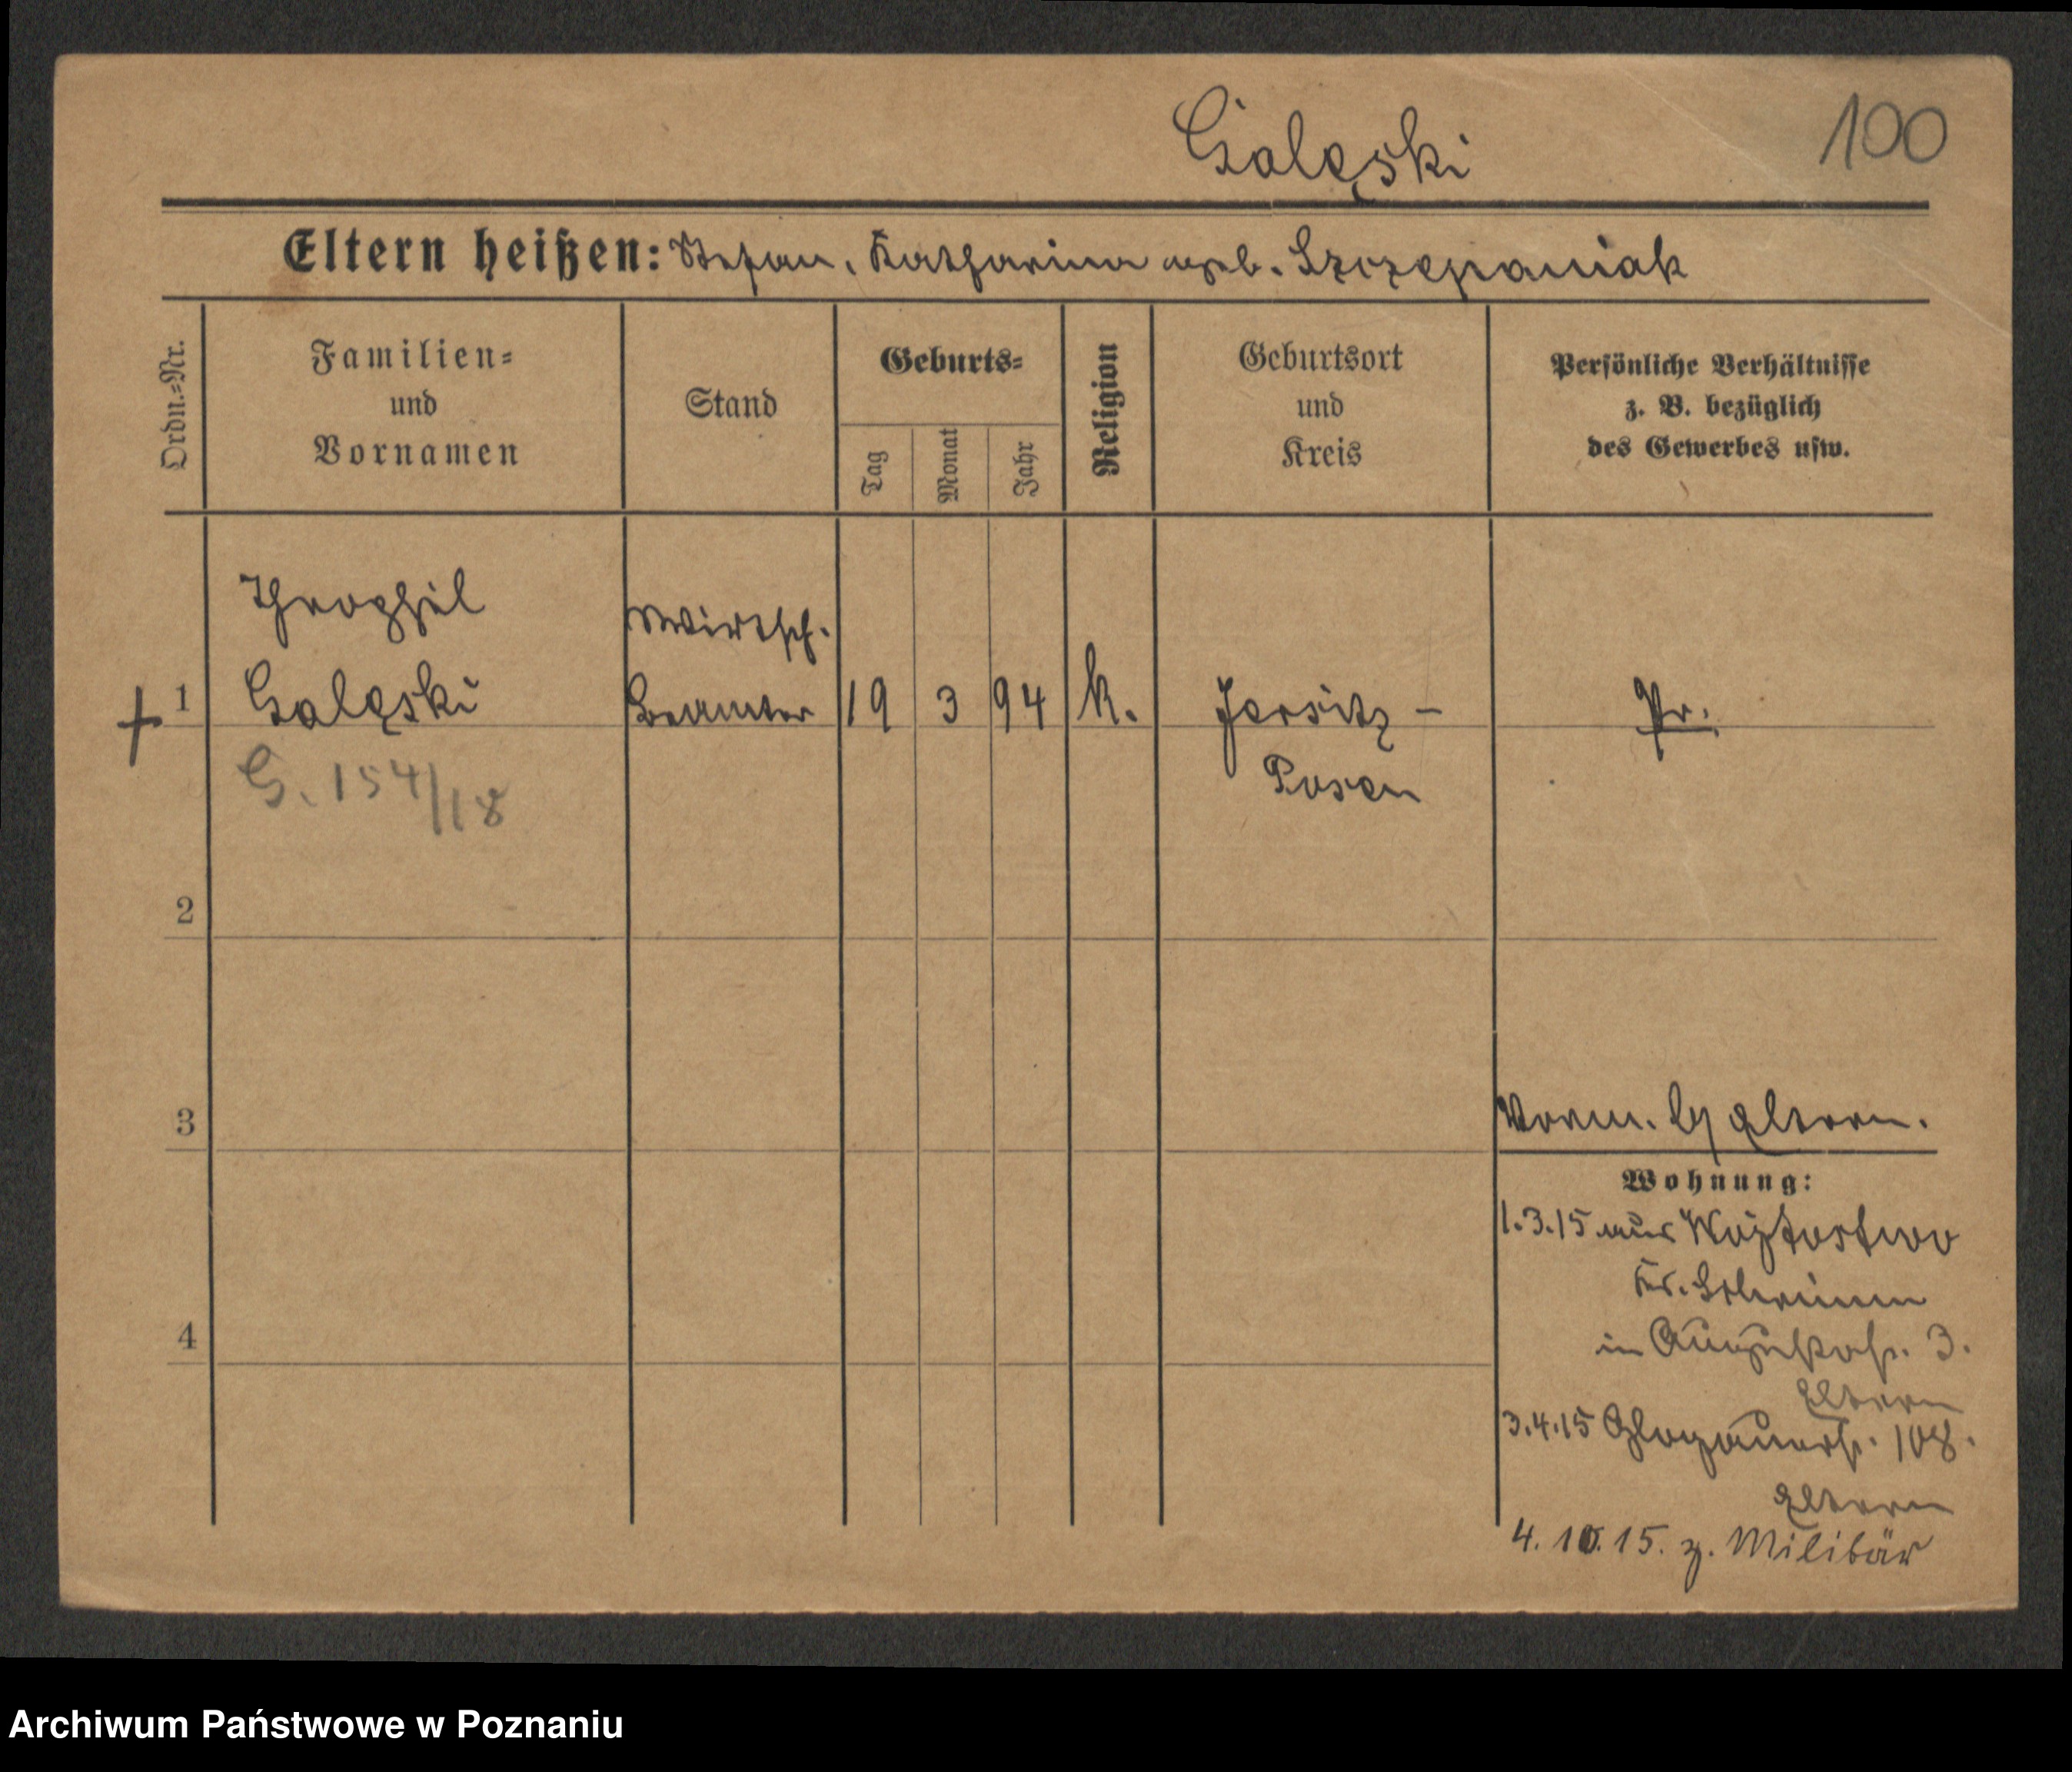 Galęski
100
Eltern heißen: Stefan, Katharina geb. Szczepaniak
Ordn.=Nr.
Familien=
und
Vornamen
Stand
Geburts=
Tag
Monat
Jahr
Religion
Geburtsort
und
Kreis
Persönliche Verhältnisse
z. B. bezüglich
des Gewerbes usw.
Theophil
Wirtsch.
+ 1 Galęski Beamter 19 3 94 k. Jersitz - Pr.
G. 154/18
Posen
2
3
Vorm. Eltern.
Wohnung:
1.3.15 aus Wojtostwo
Kr. Schrimm
4
in Augustastr. 3.
Eltern
3.4.15 Glogauerstr. 108.
Eltern
4. 10. 15. z. Militär
Archiwum Państwowe w Poznaniu